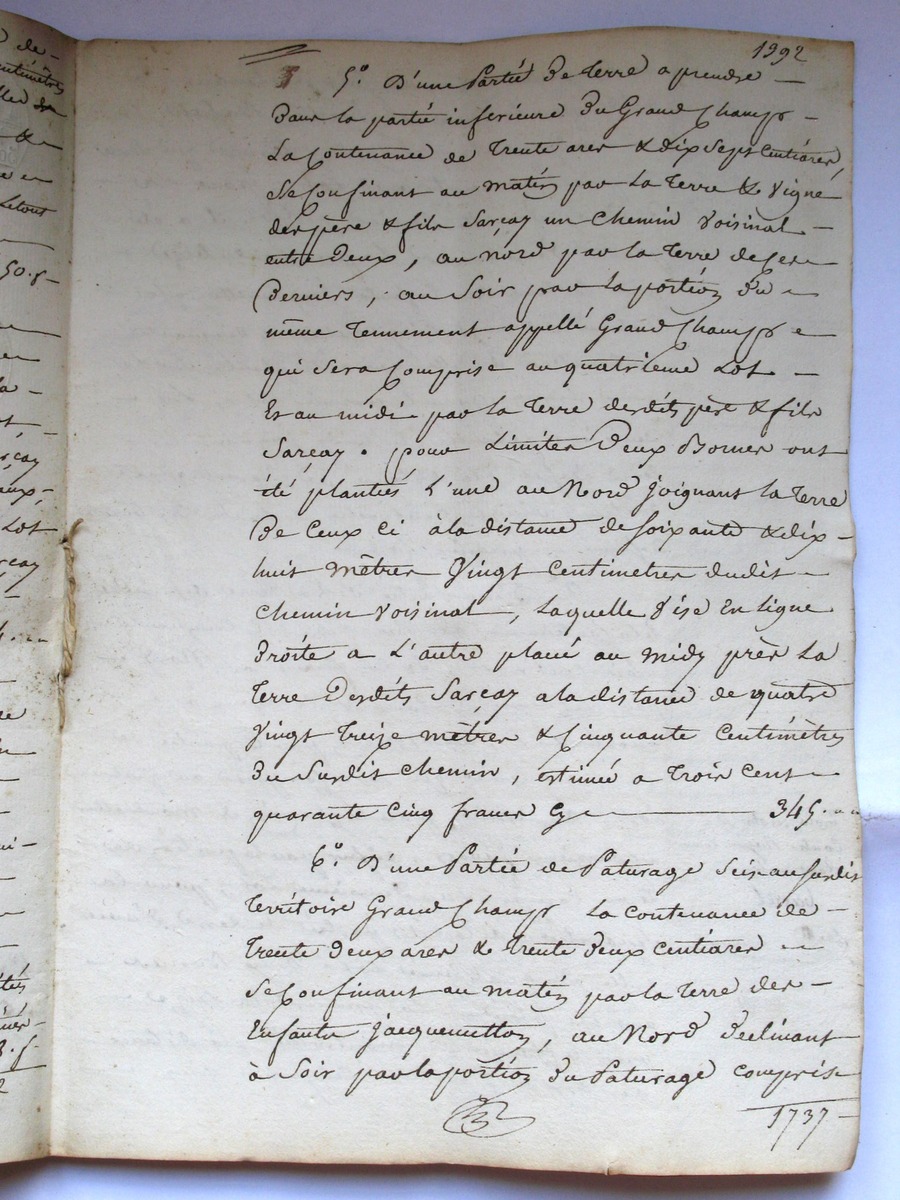 1392
5º D'une Partié de terre a prendre
dans la partié inferieure du Grand Champs
La Contenance de trente ares & dix sept Centiares
Se Confinant au matin par la terre & Vigne
des père & fils Sarçay un Chemin Voisinal
entre deux, au nord par la terre de ces
Derniers, au Soir par la portion du
même tennement appellé Grand Champs
qui sera Comprise au quatrieme Lot
Et au midi par la terre desdits père & fils
Sarçay. pour Limiter deux Bornes ont
été plantés L'une au Nord joignant la terre
de Ceux ci à la distance de soixante & dix
huit mètres Vingt Centimetres dudit
Chemin Voisinal, Laquelle Vise En Ligne
Droite a L'autre placé au midy près La
terre desdits Sarçay a la distance de quatre
Vingt treize mètres & Cinquante Centimètres
du Susdit Chemin, estimée a trois Cent
quarante Cinq francs Cy 345.
6º D'une Partié de Paturage Seis au susdit
territoire Grand Champs La Contenance de
trente deux ares & trente deux Centiares
Se Confinant au matin par la terre des
Enfants Jacquemetton, au Nord declinant
à Soir par la portion du Paturage Comprise
1737
de
Centimètres
&
Letout
50. f
Sarçay
Lot
Sarçay